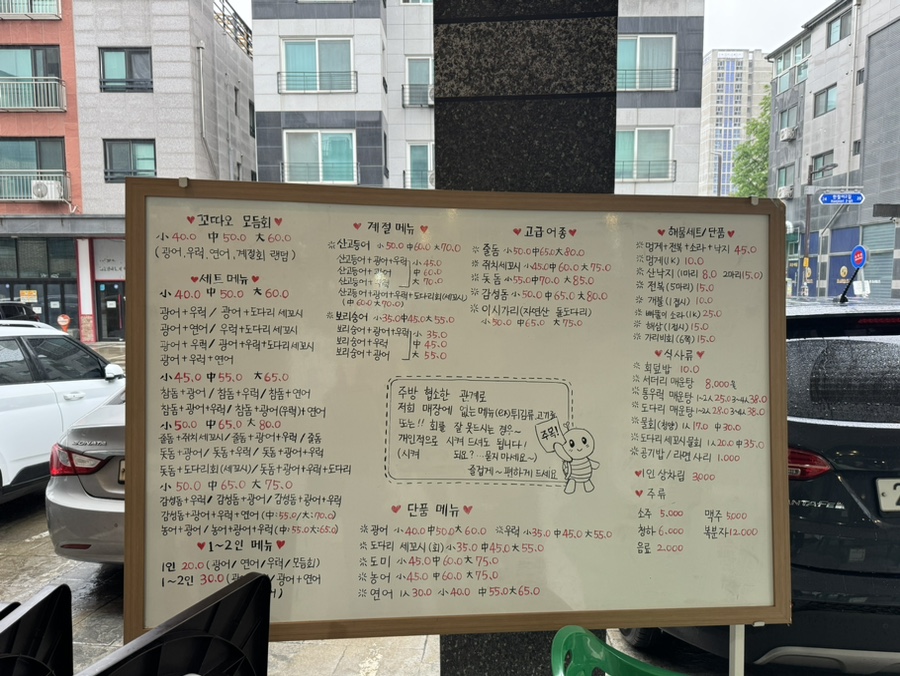 ♥ 꼬따오 모듬회 ♥
小 40.0 中 50.0 大 60.0
(광어, 우럭, 연어, 계절회 랜덤)
♥ 세트 메뉴 ♥
小 40.0 中 50.0 大 60.0
광어+우럭 / 광어+도다리 세꼬시
광어+연어 / 우럭+도다리 세꼬시
광어+우럭 / 광어+우럭+도다리세꼬시
광어+우럭+연어
小 45.0 中 55.0 大 65.0
참돔+광어 / 참돔+우럭 / 참돔+연어
참돔+광어+우럭 / 참돔+광어(우럭)+연어
小 50.0 中 65.0 大 80.0
줄돔+쥐치세꼬시 / 줄돔+광어+우럭 / 줄돔
돗돔+광어 / 돗돔+우럭 / 돗돔+광어+우럭
돗돔+도다리회(세꼬시) / 돗돔+광어+우럭+도다리
小 50.0 中 65.0 大 75.0
감성돔+우럭 / 감성돔+광어 / 감성돔+광어+우럭
감성돔+광어+우럭+연어(中:55.0/大:70.0)
농어+광어 / 농어+광어+우럭(中:55.0 大:65.0)
♥ 1~2인 메뉴 ♥
1인 20.0 (광어/연어/우럭/모듬회)
1~2인 30.0 / 광어+연어
♥ 계절 메뉴 ♥
※ 산고등어 小 50.0 中 60.0 大 70.0
산고등어+광어+우럭 小 45.0
산고등어+광어 中 60.0
산고등어+우럭 大 70.0
산고등어+광어+우럭+도다리회(세꼬시)
(中 60.0 大 70.0)
※ 보리숭어 小 35.0 中 45.0 大 55.0
보리숭어+광어+우럭 小 35.0
보리숭어+우럭 中 45.0
보리숭어+광어 大 55.0
♥ 고급어종 ♥
※ 줄돔 小 50.0 中 65.0 大 80.0
※ 쥐치세꼬시 小 45.0 中 60.0 大 75.0
※ 돗돔 小 55.0 中 70.0 大 85.0
※ 감성돔 小 50.0 中 65.0 大 80.0
※ 이시가리(자연산 돌도다리)
小 50.0 中 65.0 大 75.0
주방 협소한 관계로
저희 매장에 없는 메뉴(ex)튀김류,고기류
또는!! 회를 잘 못드시는 경우~
개인적으로 시켜 드셔도 됩니다!
(시켜 되요?...묻지 마세요~)
즐겁게~ 편하게 드세요
주목!
♥ 단품 메뉴 ♥
※ 광어 小 40.0 中 50.0 大 60.0 ※우럭 小 35.0 中 45.0 大 55.0
※ 도다리 세꼬시(회) 小 35.0 中 45.0 大 55.0
※ 도미 小 45.0 中 60.0 大 75.0
※ 농어 小 45.0 中 60.0 大 75.0
※ 연어 1人 30.0 小 40.0 中 55.0 大 65.0
♥ 해물세트/단품 ♥
※ 멍게+전복+소라+낙지 45.0
※ 멍게(1K) 10.0
※ 산낙지 (1마리 8.0 2마리 15.0)
※ 전복 (5마리) 15.0
※ 개불 (1접시) 10.0
※ 뿔소라 (1K) 25.0
※ 해삼 (1접시) 15.0
※ 가리비회 (6쪽) 15.0
♥ 식사류 ♥
※ 회덮밥 10.0
※ 서더리 매운탕 8,000원
※ 통우럭 매운탕 1~2人 25.0 3~4人 38.0
※ 도다리 매운탕 1~2人 28.0 3~4人 38.0
※ 물회 (청량) 1人 17.0 中 30.0
※ 도다리 세꼬시물회 1人 20.0 中 35.0
※ 공기밥 / 라면사리 1.000
♥ 1인 상차림 3000
♥ 주류
소주 5.000 맥주 5,000
청하 6.000 복분자 12.000
음료 2.000
SONATA
SANTAFE